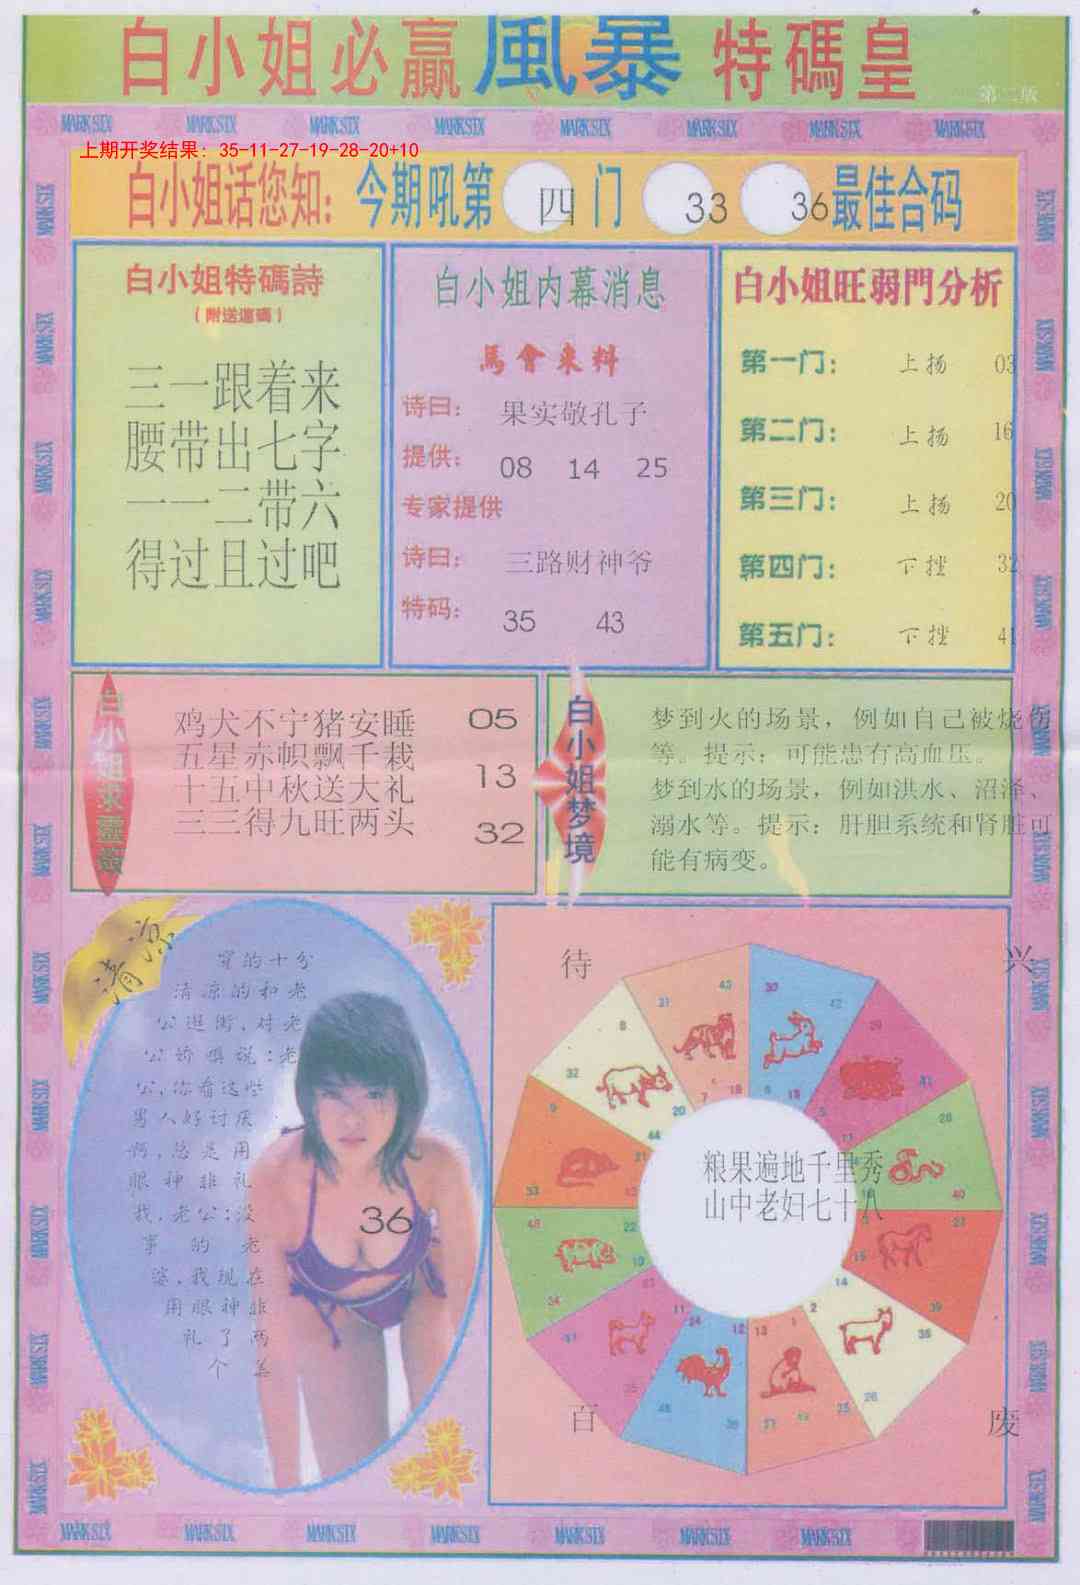 白小姐必贏風暴 特碼皇
第二版
MARK SIX MARK SIX MARK SIX MARK SIX MARK SIX MARK SIX MARK SIX MARK SIX
上期开奖结果: 35-11-27-19-28-20+10
白小姐话您知: 今期吼第 四 门 33 36 最佳合码
白小姐特碼詩
三一跟着来
腰带出七字
一一二带六
得过且过吧
白小姐内幕消息
馬會来料
诗曰: 果实敬孔子
提供: 08 14 25
专家提供
诗曰: 三路财神爷
特码: 35 43
白小姐旺弱門分析
第一门: 上扬 03
第二门: 上扬 16
第三门: 上扬 20
第四门: 下挫 32
第五门: 下挫 41
鸡犬不宁猪安睡 05
五星赤帜飘千栽
十五中秋送大礼 13
三三得九旺两头 32
白小姐梦境
梦到火的场景，例如自己被烧伤
等。提示：可能患有高血压。
梦到水的场景，例如洪水、沼泽、
溺水等。提示：肝胆系统和肾脏可
能有病变。
清凉
穿的十分
清凉的和老
公逛街,对老
公娇嗔说:老
公,你看这些
男人好讨厌
啊,总是用
眼神非礼
我,老公:没
事的老
婆,我现在
用眼神非
礼了两
个
36
待 兴
百 废
粮果遍地千里秀
山中老妇七十八
MARK SIX MARK SIX MARK SIX MARK SIX MARK SIX MARK SIX MARK SIX